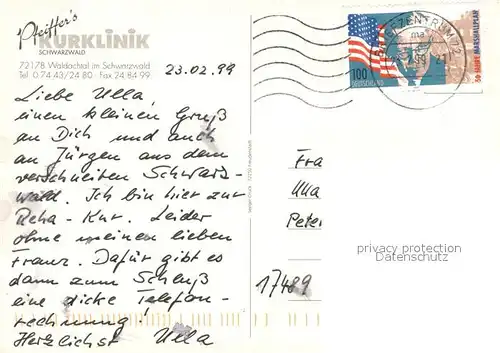 Pfeiffer's
KURKLINIK
SCHWARZWALD
72178 Waldachtal im Schwarzwald
Tel. 0 74 43/24 80 Fax 24 84 99
23.02.99
Liebe Ulla,
einen kleinen Gruß
an Dich und auch
an Jürgen aus dem
verschneiten Schwarz-
wald. Ich bin hier zur
Reha-Kur. Leider
ohne meinen lieben
Franz. Dafür gibt es
dann zum Schluß
eine dicke Telefon-
rechnung!
Herzlichst Ulla
BRIEFZENTRUM 72
ma
100
DEUTSCHLAND
50 JAHRE MARSHALLPLAN
Fra
Peter
privacy protection
Datenschutz
17489